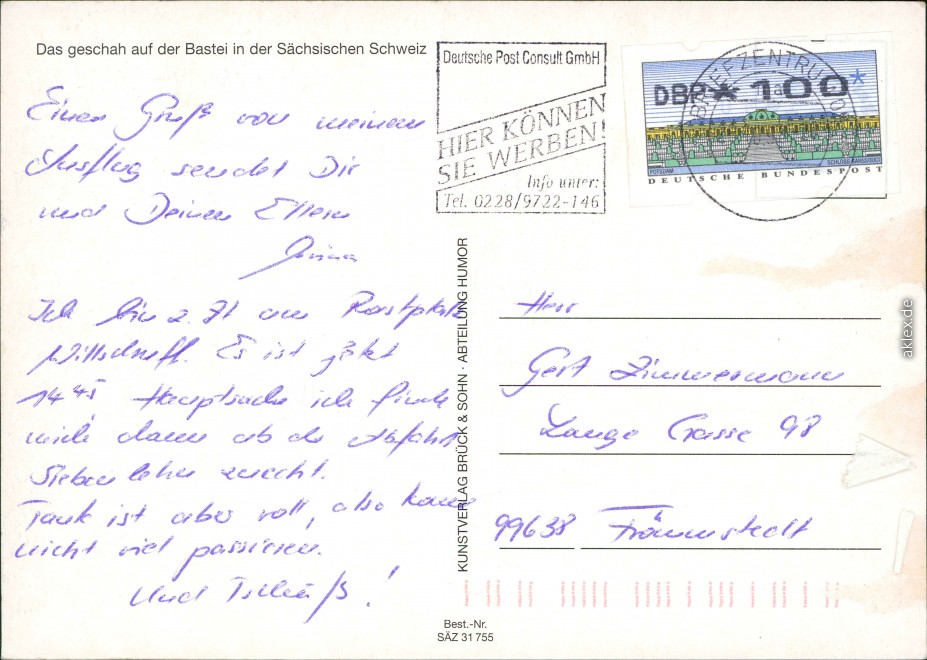 Das geschah auf der Bastei in der Sächsischen Schweiz
Einen Gruß von meinem
Ausflug sendet Dir
und Deinen Eltern
Ich bin z. Zt am Rastplatz
Wilsdruff. Es ist jetzt
14 45 Hauptsache ich finde
mich dann ab der Abfahrt
Siebenlehn zurecht.
Tank ist aber voll, also kann
nicht viel passieren.
Und Tschüß!
Deutsche Post Consult GmbH
HIER KÖNNEN
SIE WERBEN!
Info unter:
Tel. 0228/9722-146
BRIEFZENTRUM
DBP * 100 *
POTSDAM SCHLOSS SANSSOUCI
DEUTSCHE BUNDESPOST
KUNSTVERLAG BRÜCK & SOHN · ABTEILUNG HUMOR
Herr
Gert Zimmermann
Lange Gasse 98
99638 Frömmstedt
Best.-Nr.
SÄZ 31 755
aklex.de